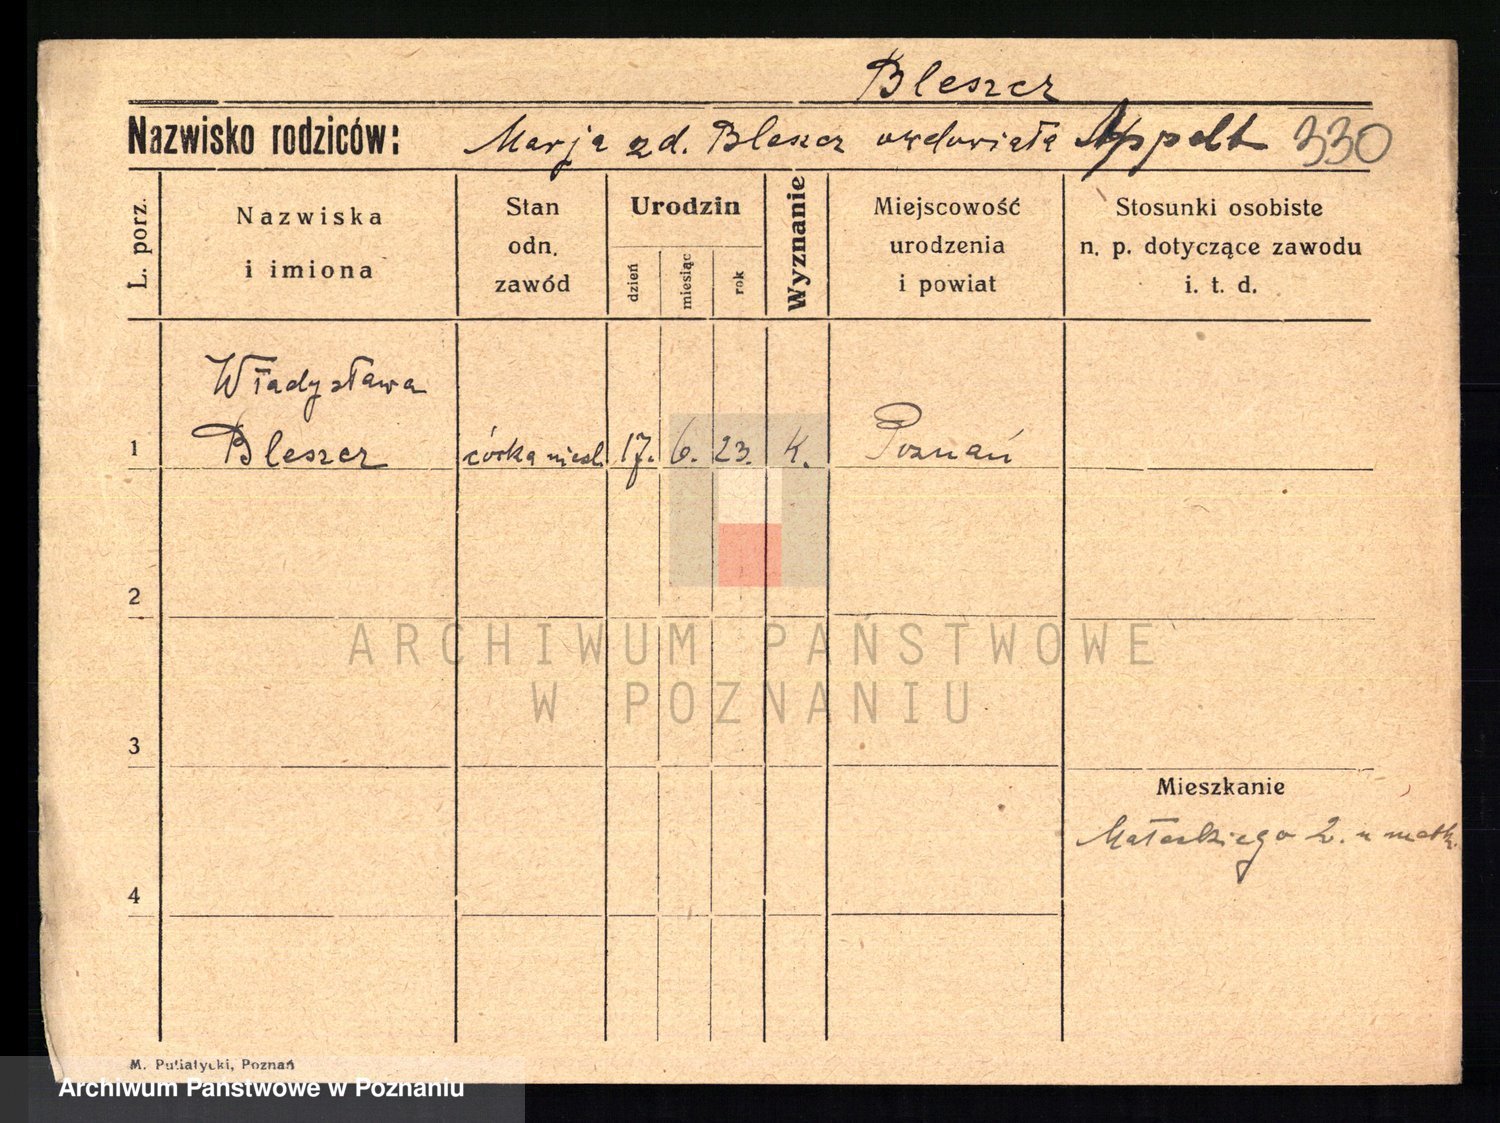 Bleszcz
Nazwisko rodziców: Marja zd. Bleszcz owdowiała Appelt 330
L. porz.
Nazwiska
i imiona
Stan
odn.
zawód
Urodzin
dzień
miesiąc
rok
Wyznanie
Miejscowość
urodzenia
i powiat
Stosunki osobiste
n. p. dotyczące zawodu
i. t. d.
Władysława
1 Bleszcz córka nieśl. 17. 6. 23. K. Poznań
2
3
Mieszkanie
Małeckiego 2. u matk.
4
M. Putiatycki, Poznań
ARCHIWUM PAŃSTWOWE
W POZNANIU
Archiwum Państwowe w Poznaniu